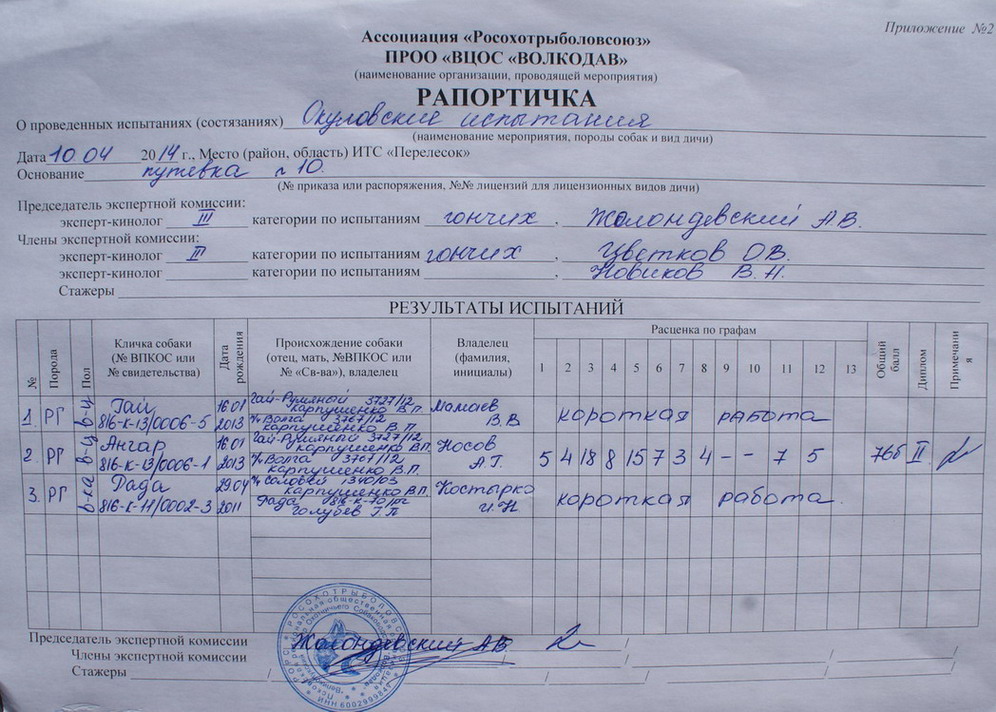 Приложение №2
Ассоциация «Росохотрыболовсоюз»
ПРОО «ВЦОС «ВОЛКОДАВ»
(наименование организации, проводящей мероприятия)
РАПОРТИЧКА
О проведенных испытаниях (состязаниях) Окуловские испытания
(наименование мероприятия, породы собак и вид дичи)
Дата 10 04 2014 г., Место (район, область) ИТС «Перелесок»
Основание путевка 10.
(№ приказа или распоряжения, №№ лицензий для лицензионных видов дичи)
Председатель экспертной комиссии:
эксперт-кинолог III категории по испытаниям гончих , Жолондевский А.В.
Члены экспертной комиссии:
эксперт-кинолог категории по испытаниям гончих , Цветков О.В.
эксперт-кинолог категории по испытаниям , Новиков В.Н.
Стажеры
РЕЗУЛЬТАТЫ ИСПЫТАНИЙ
№ Порода Пол Кличка собаки (№ ВПКОС или № свидетельства) Дата рождения Происхождение собаки (отец, мать, №ВПКОС или № «Св-ва»), владелец Владелец (фамилия, инициалы) Расценка по графам Общий балл Диплом Примечания
1 2 3 4 5 6 7 8 9 10 11 12 13
1. РГ в-ц Гай 16 01 Гай-Румяный 3727/12 Мамаев
816-К-13/0006-5 2013 карпушенко В.П. В.В короткая работа
Волга 3767/12
карпушенко В.П.
2. РГ в-ц Ангар 16.01 Гай-Румяный 3727/12 Носов
816-К-13/0006-1 2013 карпушенко В.П. А.Т. 5 4 18 8 15 7 3 4 - - 7 5 76б II
Волга 3767/12
карпушенко В.П.
3. РГ в-ка Рада 29.04 Соловей 1340/03 Костырко
816-К-11/0002-3 2011 карпушенко В.П. И.Н короткая работа.
Рада 816-К-
Голубев Г.П
Председатель экспертной комиссии Жолондевский А.В.
Члены экспертной комиссии
Стажеры
РОСОХОТРЫБОЛОВС
ИНН 6002999844